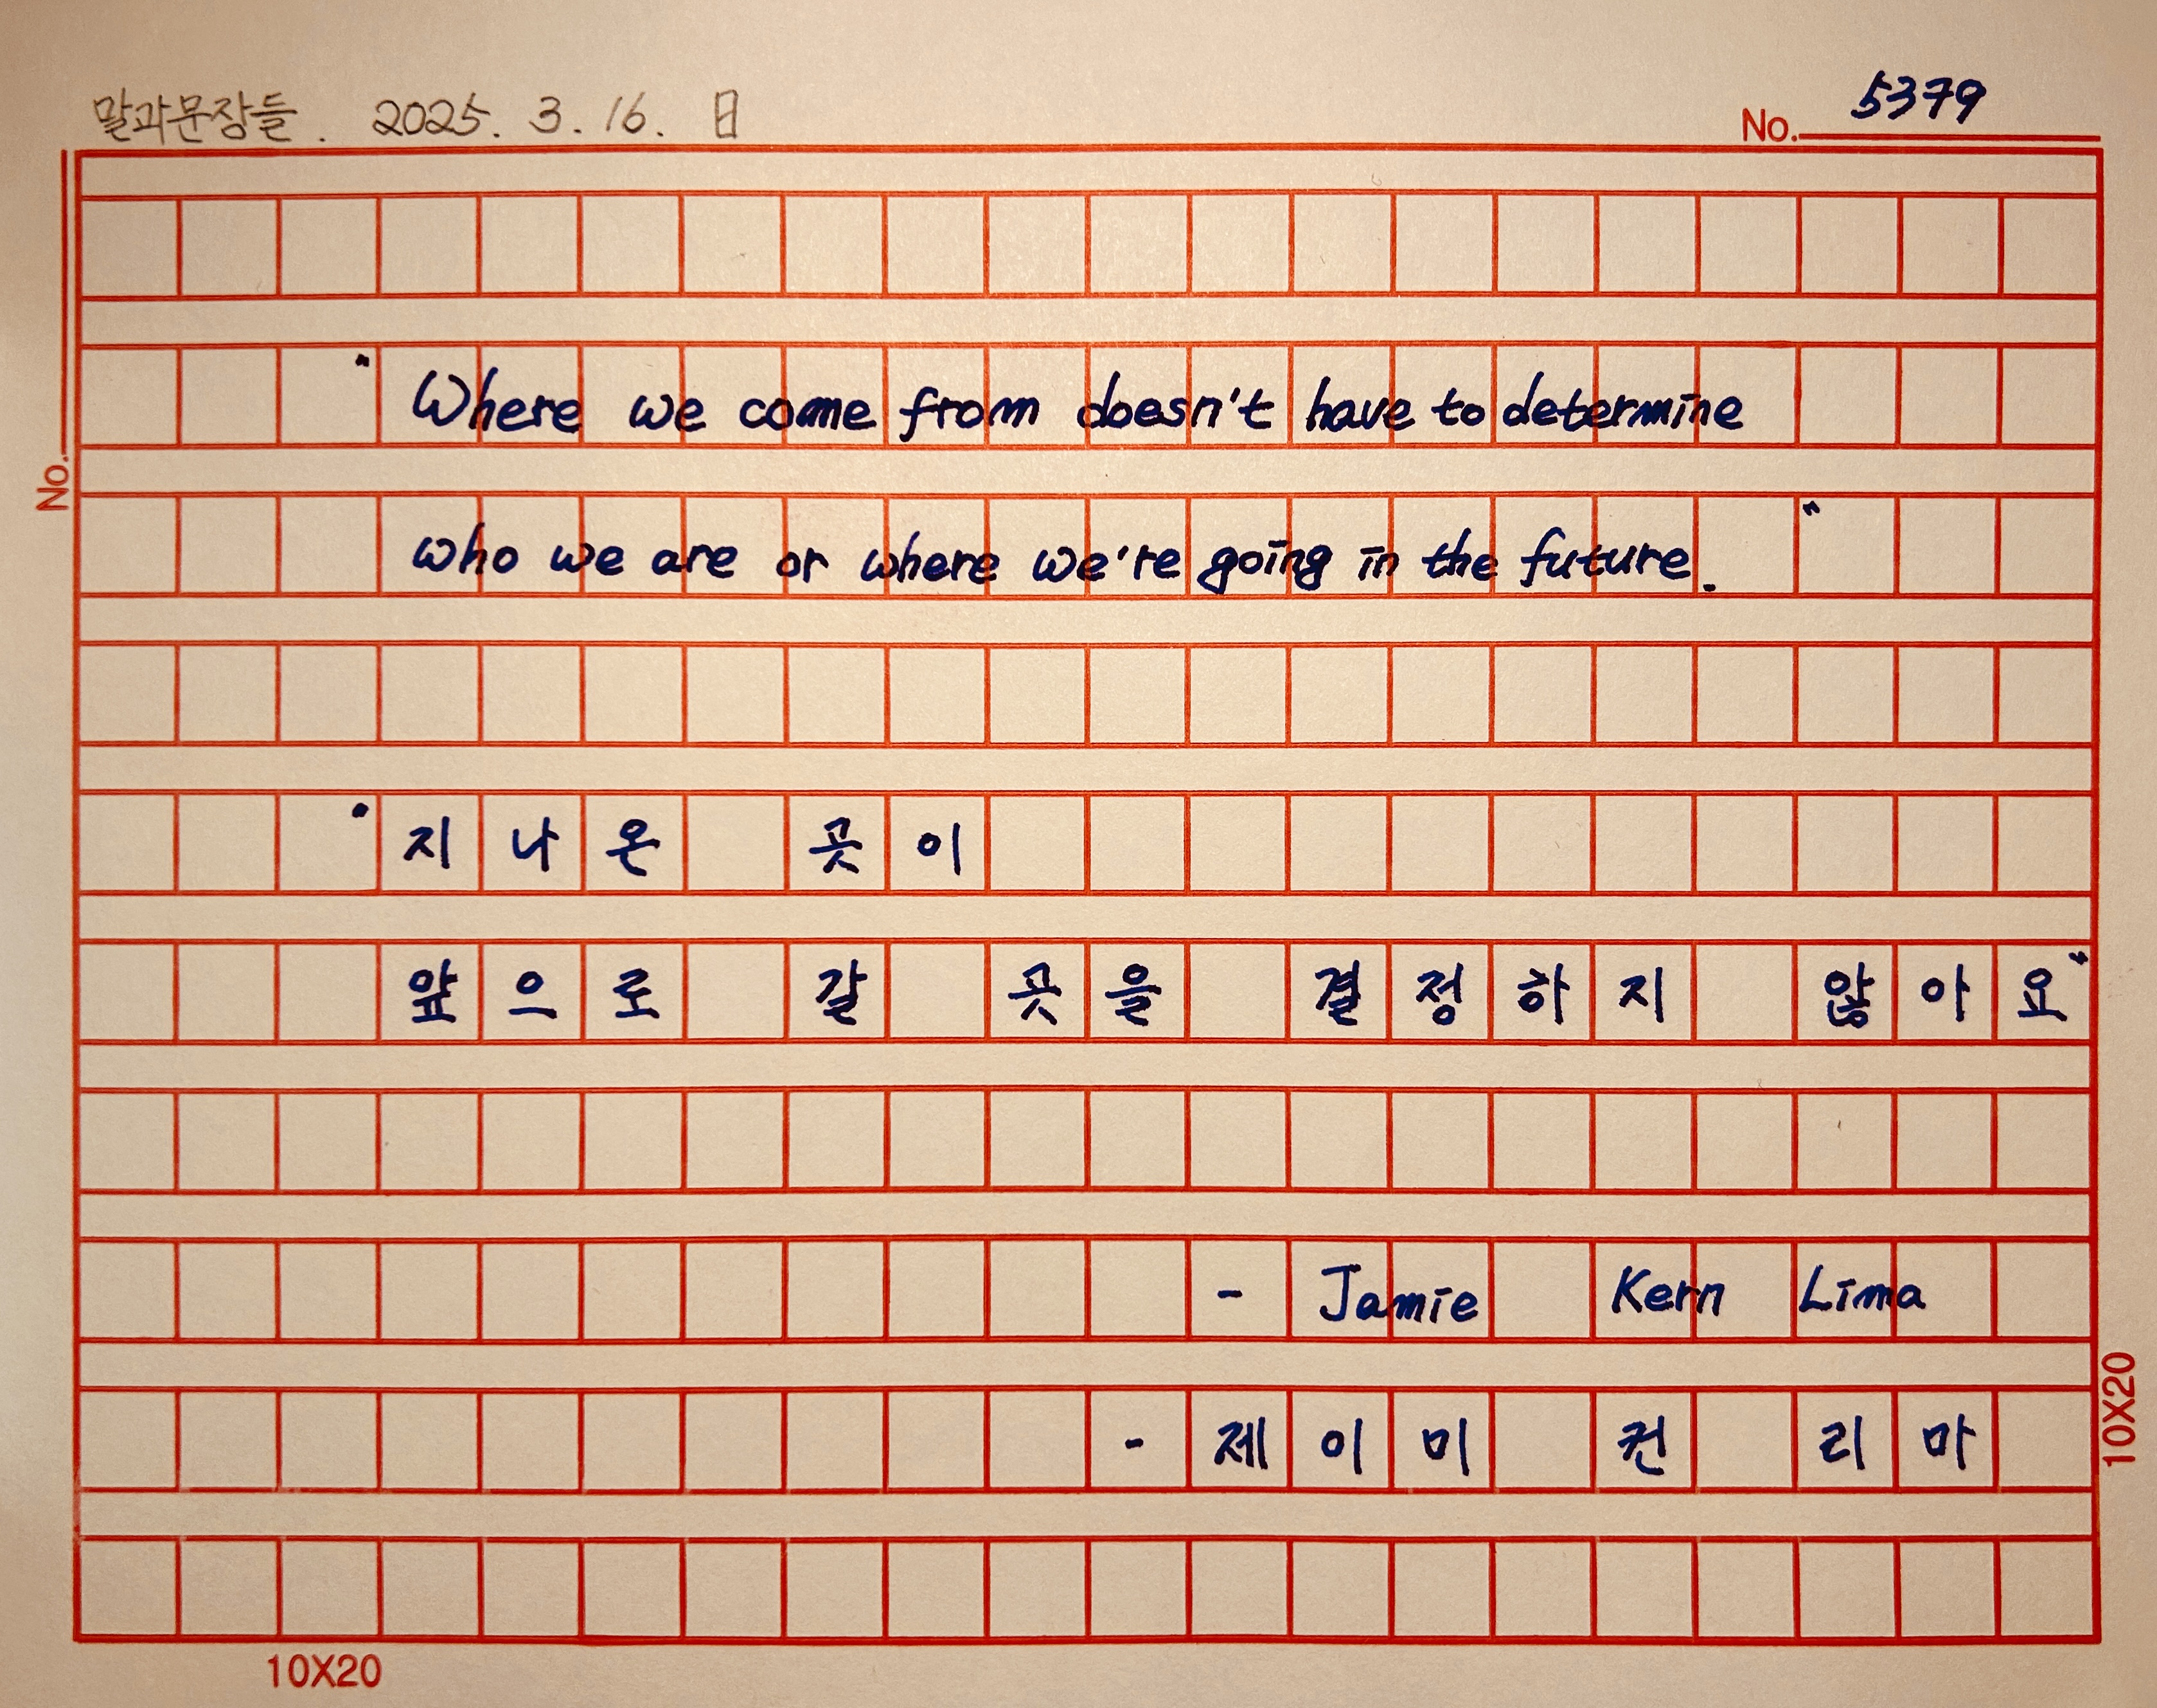 말과문장들. 2025. 3. 16. 日
No. 5379
No.
"Where we come from doesn't have to determine
who we are or where we're going in the future."
"지나온 곳이
앞으로 갈 곳을 결정하지 않아요"
- Jamie Kern Lima
- 제이미 컨 리마
10X20
10X20